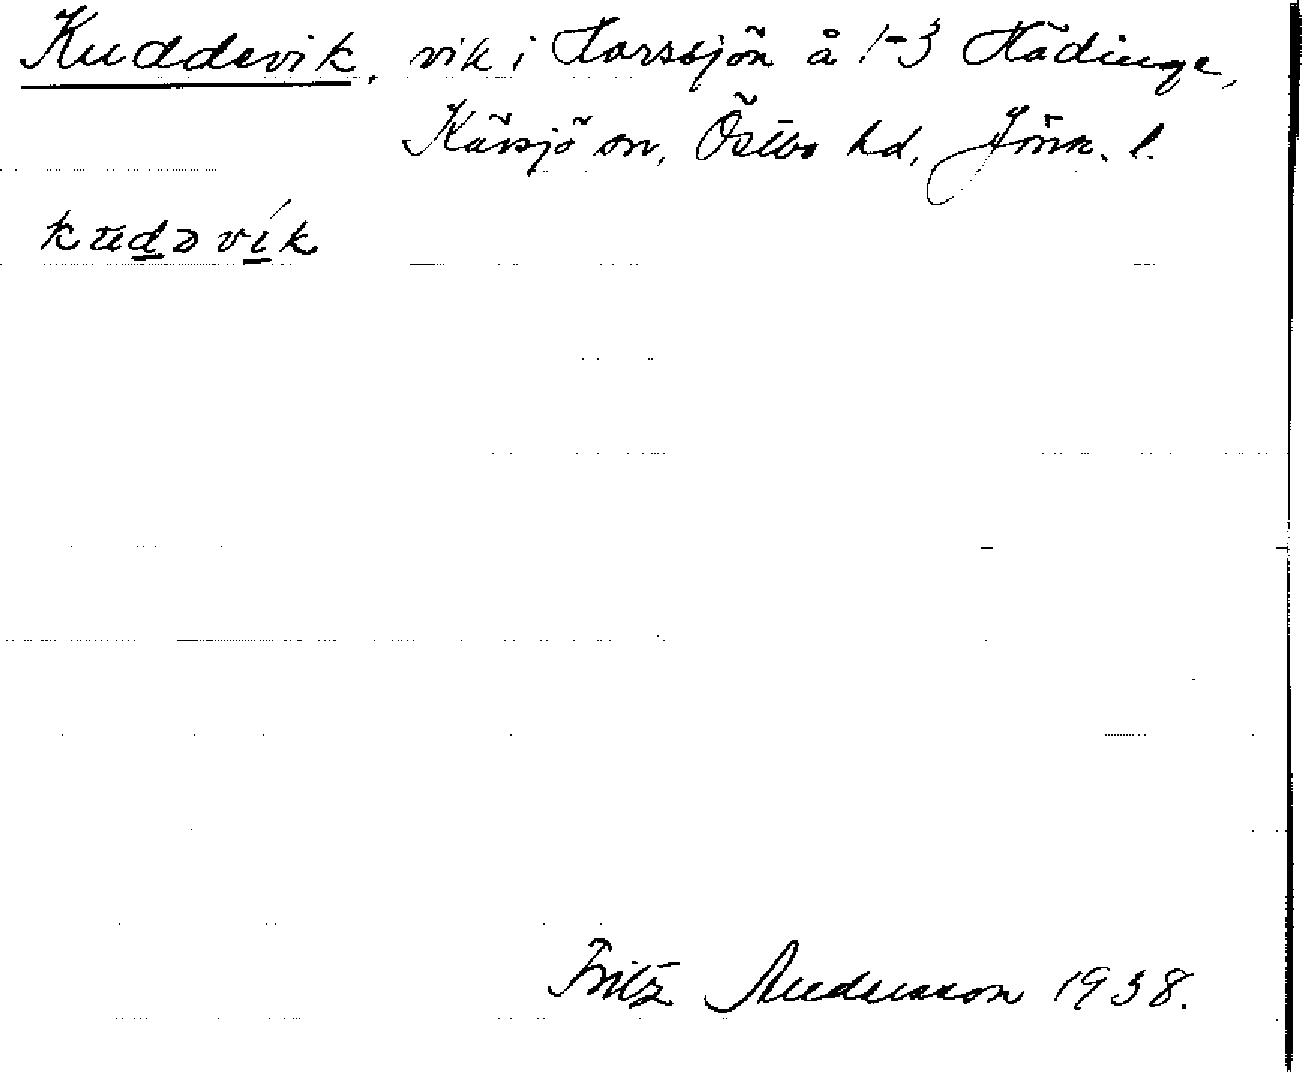 Kuddevik, vik i Harssjön å 1-3 Hädinge,
Kärsjö sn, Östbo hd, Jönk. l.
kudəvík
Fritz Andersson 1938.